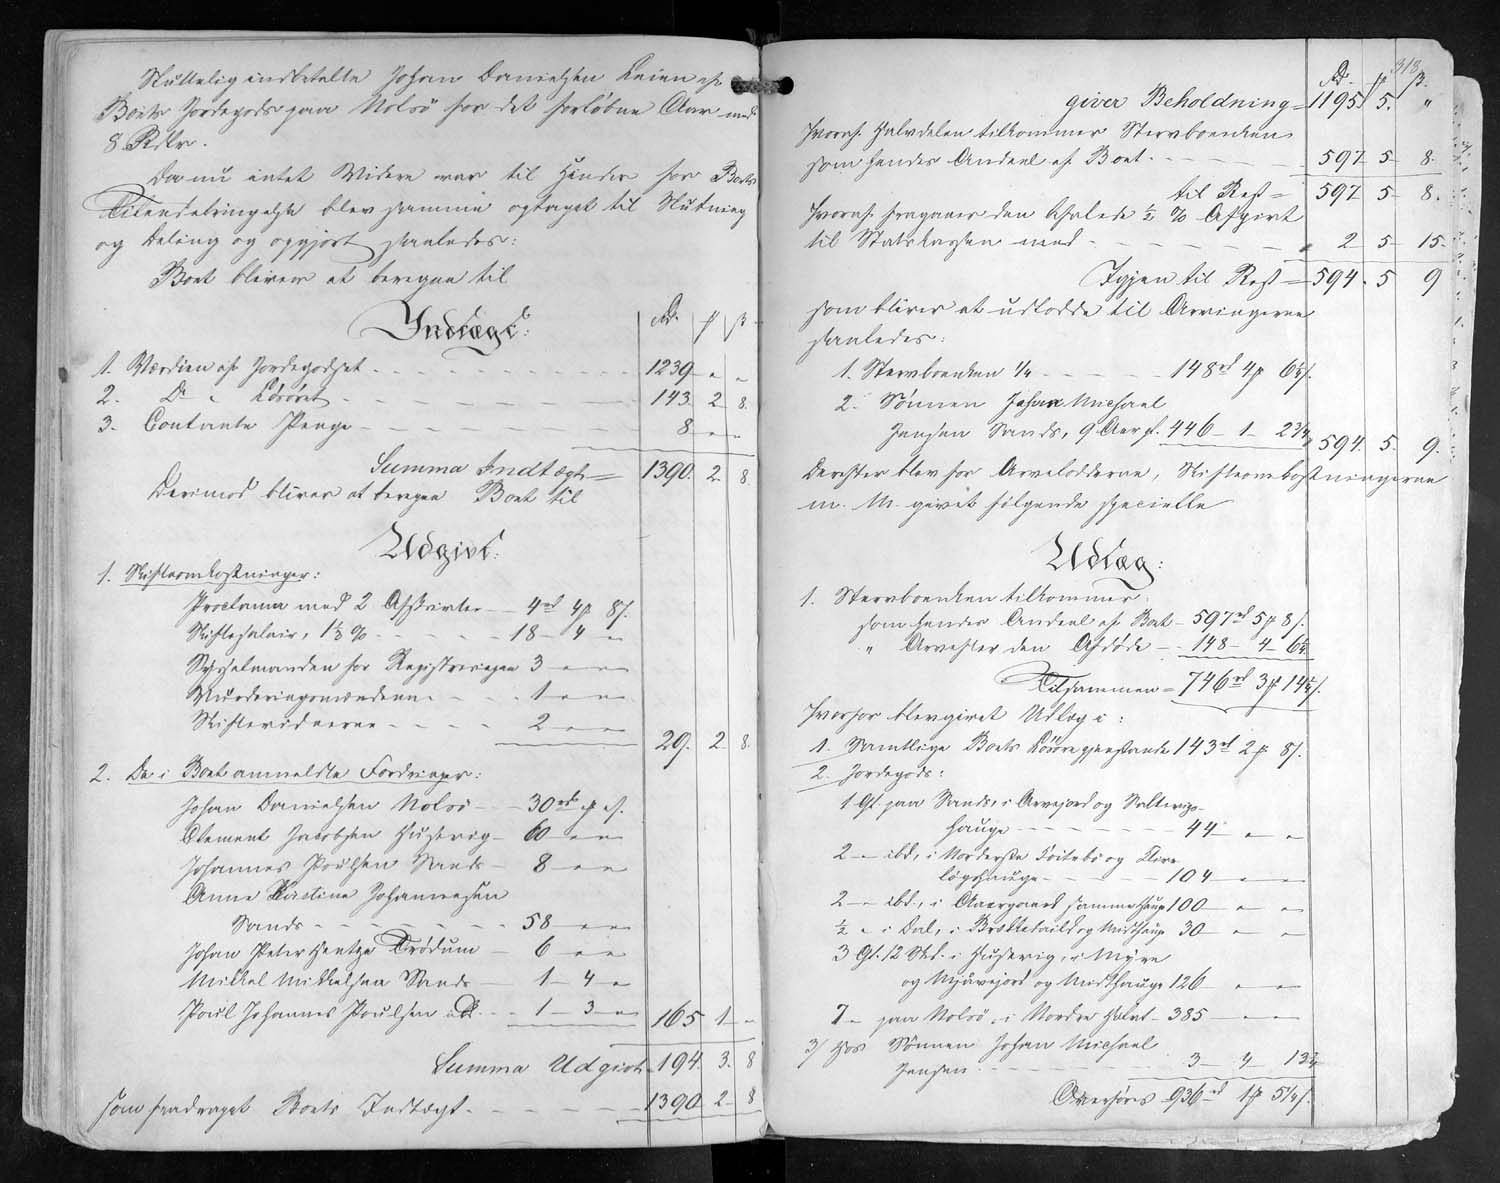 Sluttelig indbetalte Johan Danielsen Leien af
Boets Jordegods paa Nolsö for det forløbne Aar med
8 Rdlr.
Da nu intet Videre var til Hinder for Boets
Tilendebringelse blev samme optaget til Slutning
og Deling og opgjort saaledes:
Boet bliver at beregne til
Indtægt:
Rd. ₰ β
1. Værdien af Jordegodset - - - 1239 - "  "
2. Do " Løsöret - - - 143. 2 8.
3. Contante Penge - - - 8 - -
Summa Indtægt = 1390. 2. 8.
Derimod bliver at beregne Boet til
Udgivt:
1. Skifteomkostninger:
Proclama med 2 Afskrivter - 4rd 4₰ 8β.
Skiftesalair, 1⅓ % - - - 18 - 4 - "
Sysselmanden for Registreringen 3 - " - "
Vurderingsmændene - - - 1 - " - "
Skiftevidnerne - - - 2 - " - "
29. 2. 8.
2. De i Boet anmeldte Fordringer:
Johan Danielsen Nolsö - - 30rd "₰ "β.
Clement Jacobsen Husevig - 60 - " - "
Johannes Poulsen Sands - 8 - " - "
Anne Kristine Johannesen
Sands - - - 58 - " - "
Johan Peter Hentze Trödum - 6 - " - "
Mikkel Mikkelsen Sands - 1 - 4 - "
Poul Johannes Poulsen ibd. - - 1 - 3 - "
165 1 - "
Summa Udgivt - 194. 3. 8
som fradraget Boets Indtægt - - - 1390 - 2 - 8
318
Rd. ₰ β.
giver Beholdning = 1195. 5. "
hvoraf Halvdelen tilkommer Stervboenken
som hendes Andeel af Boet - - - 597 - 5 - 8.
til Rest = 597 - 5 - 8.
hvoraf fragaaer den befalede ½ % Afgivt
til Statskassen med - - - 2 - 5 - 15.
Igjen til Rest = 594. 5 9
som bliver at udlodde til Arvingerne
saaledes:
1. Stervboenken ¼ - - - 148rd 4₰ 6¼β.
2. Sønnen Johan Michael
Jensen Sands, 9 Aar gl. 446 - 1 - 2¾ 594. 5. 9.
Derefter blev for Arvelodderne, Skifteomkostningerne
m. M. givet følgende specielle
Udlæg:
1. Stervboenken tilkommer:
som hendes Andeel af Boet - 597rd 5₰ 8β.
" Arv efter den Afdöde - - 148 - 4 - 6¼
Tilsammen = 746rd 3₰ 14¼β.
hvorfor blev givet Udlæg i:
1. Samtlige Boets Lösöregjenstande 143rd 2₰ 8β.
2. Jordegods:
1 Gl. paa Sands, i Arvejord og Salterigs-
hauge - - - 44 - " - "
2 - " ibd, i Norderste Toitebö og Klove
løgshauge - - - 104 - " - "
2 - " ibd, i Aaergaard sammehauge 100 - " - "
½ " i Dal, i Brekketaild og Midthauge 30 - " - "
3 Gl. 12 Skd. i Husevig, i Myre
og Myövejord og Midthauge 126 - " - "
7 - " paa Nolsö, i Nordre Halvt - 385 - " - "
3/ Hos Sønnen Johan Michael
Jensen - - - 3 - 4 - 13¼
Overføres 936rd 1₰ 5¼β.